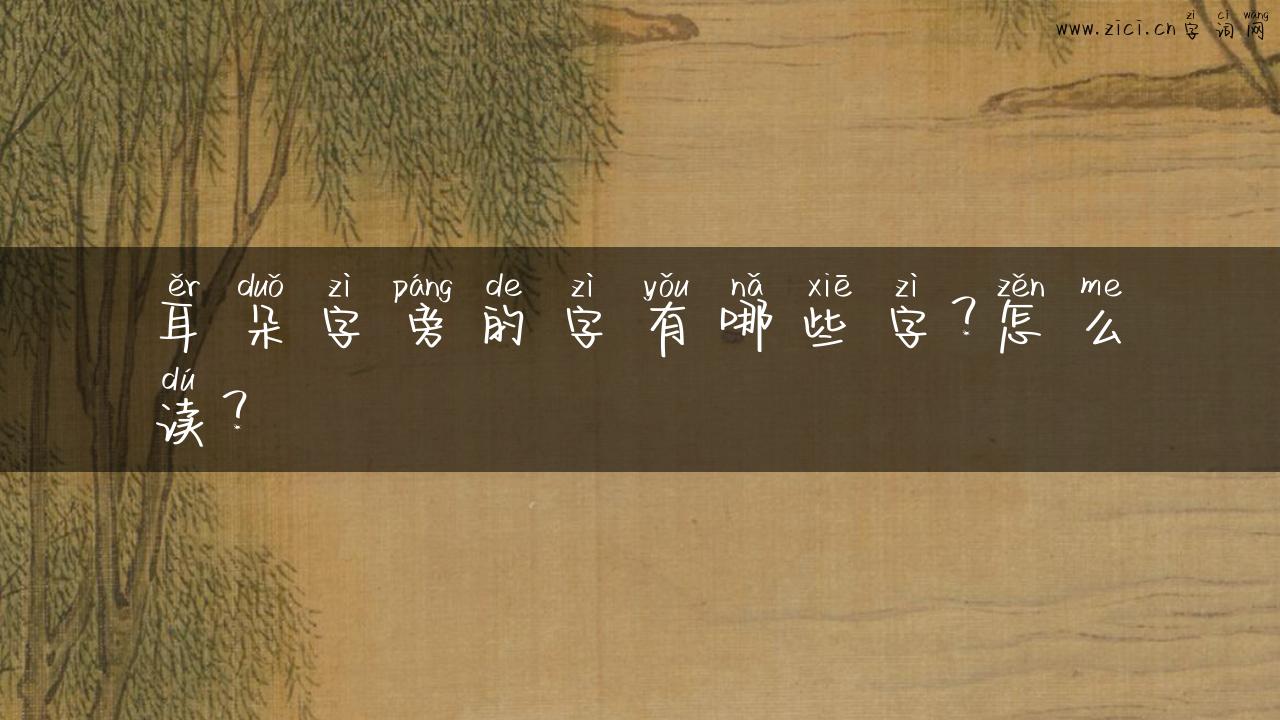 zì cí wǎng
www.zici.cn字词网
ěr duǒ zì páng de zì yǒu nǎ xiē zì zěn me
耳朵字旁的字有哪些字？怎么
dú
读？